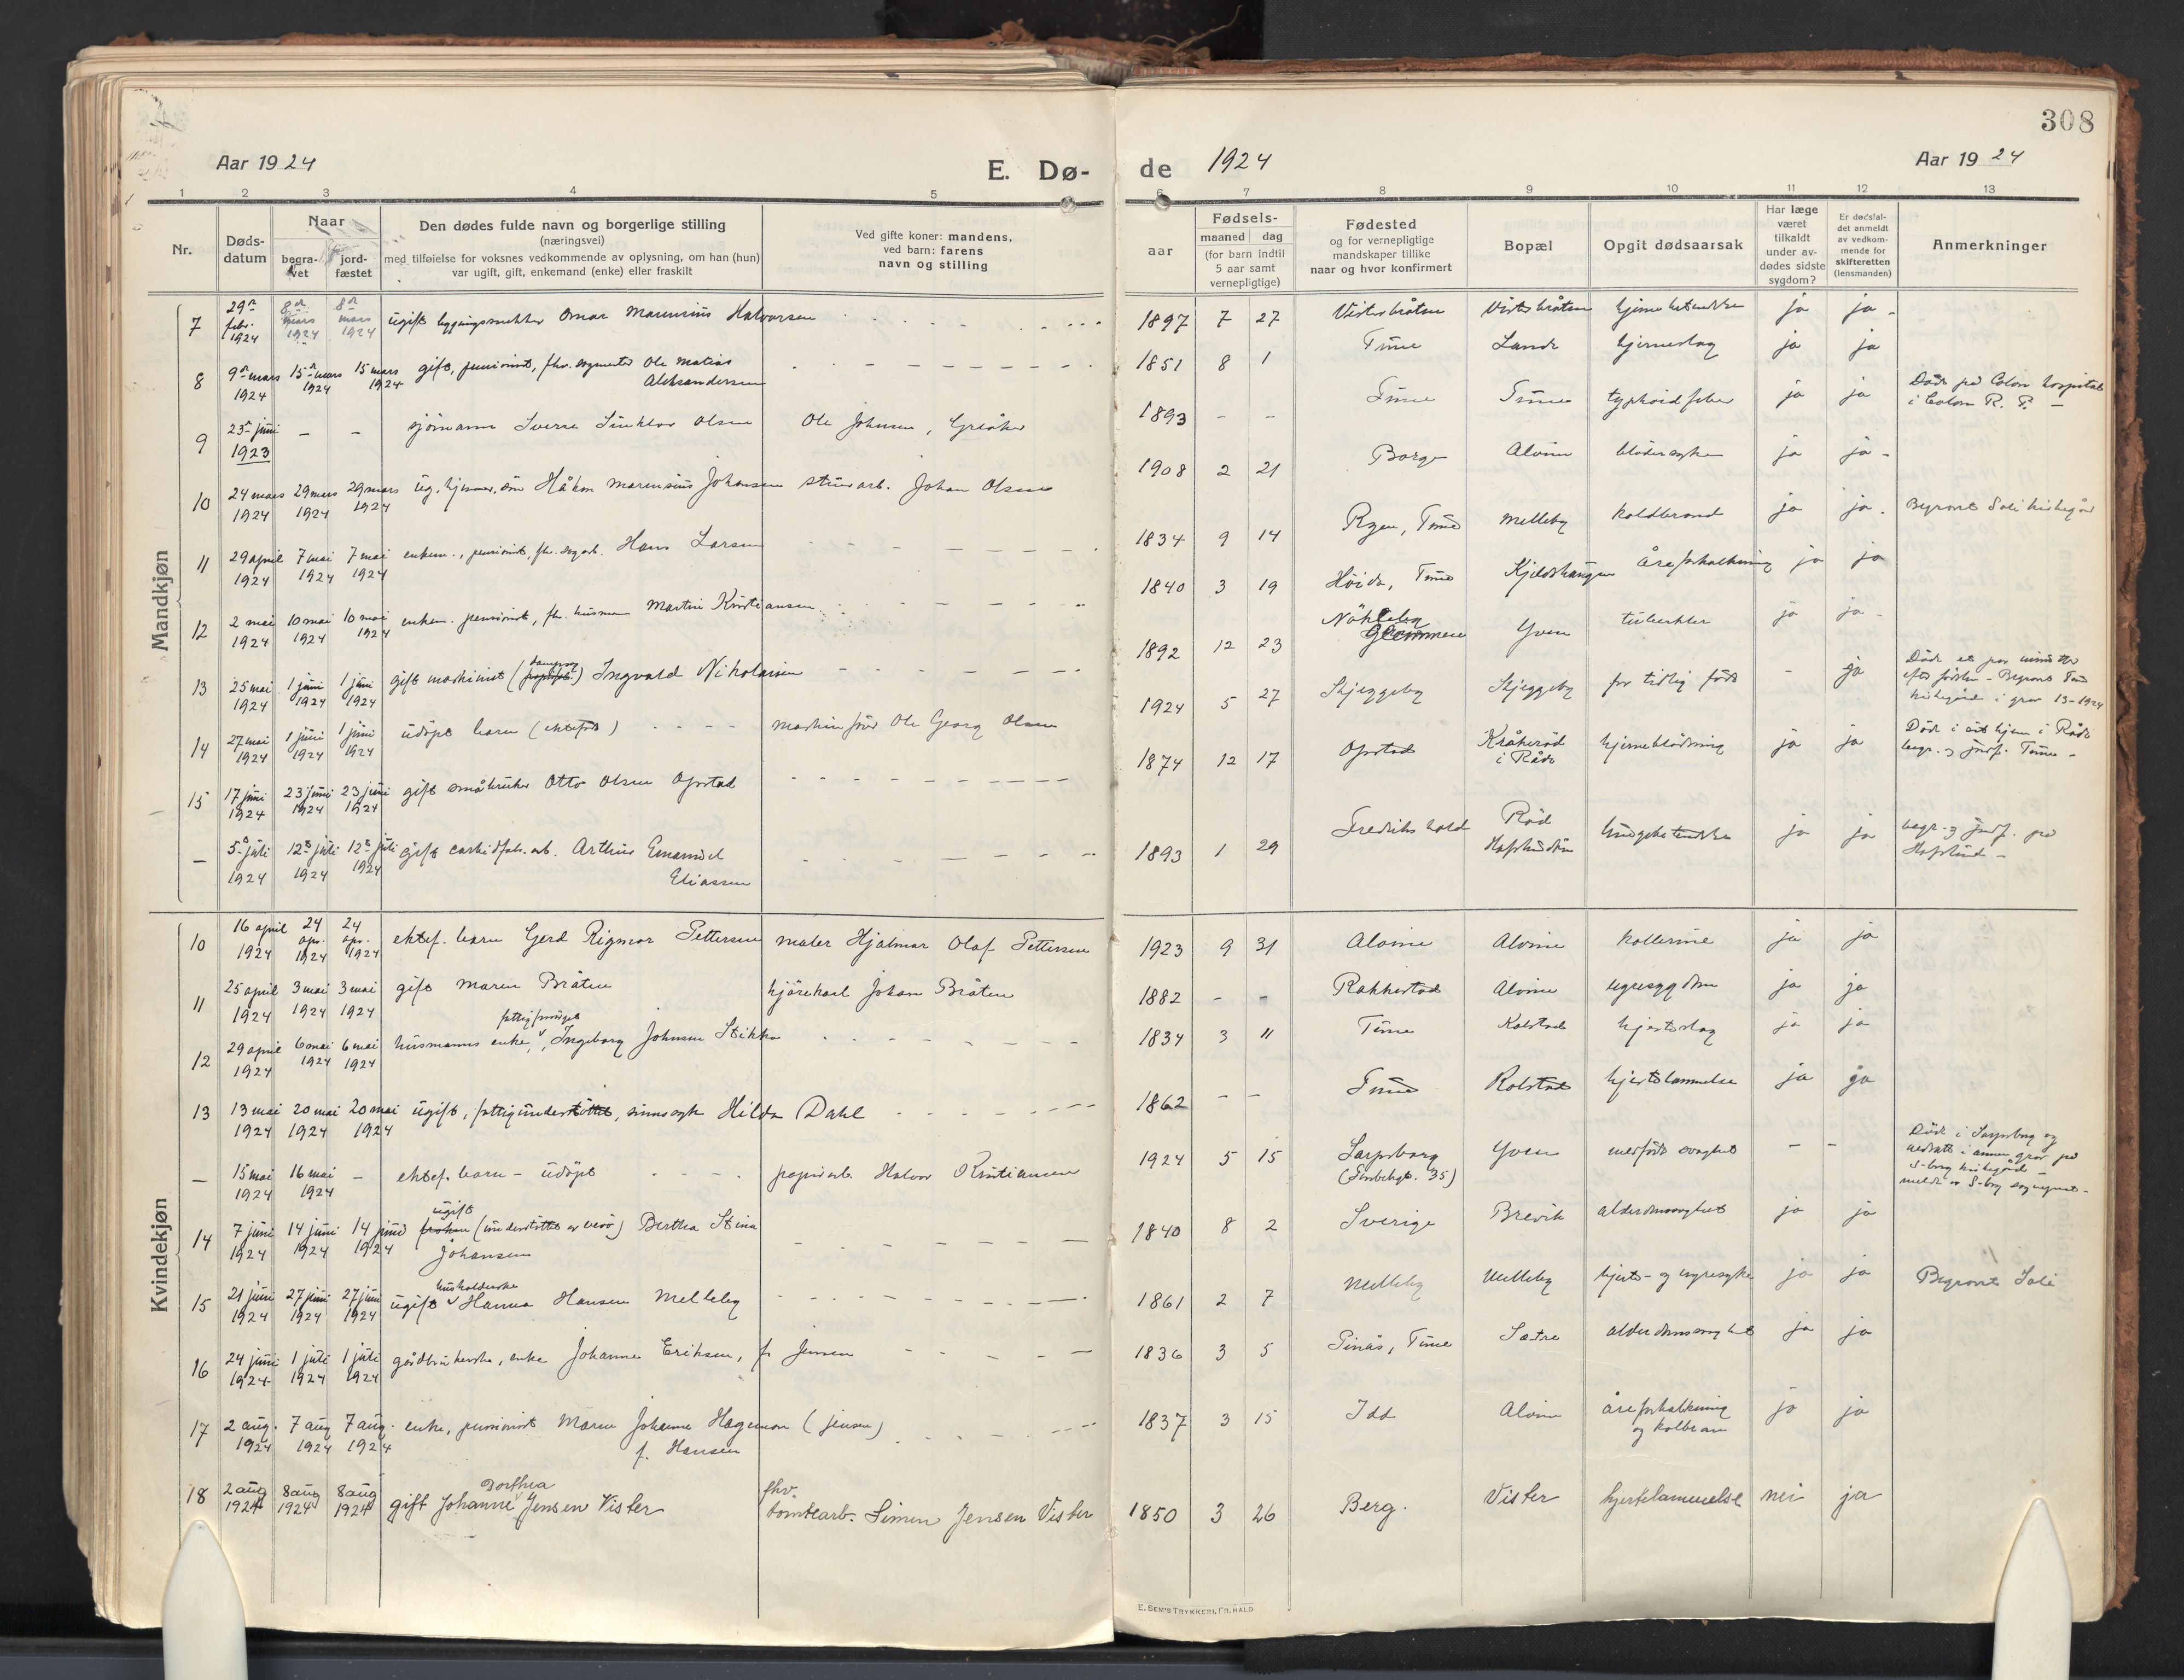 308
Aar 1924
E. Dø-
de
1924
Aar 1924
1 2 3 4 5 6 7 8 9 10 11 12 13
Nr.
Døds-
datum
Naar
begra-
vet
jord-
fæstet
Den dødes fulde navn og borgerlige stilling
(næringsvei)
med tilføielse for voksnes vedkommende av oplysning, om han (hun)
var ugift, gift, enkemand (enke) eller fraskilt
Ved gifte koner: mandens,
ved barn: farens
navn og stilling
aar
Fødsels-
maaned dag
(for barn indtil
5 aar samt
vernepligtige)
Fødested
og for vernepligtige
mandskaper tillike
naar og hvor konfirmert
Bopæl
Opgit dødsaarsak
Har læge
været
tilkaldt
under av-
dødes sidste
sygdom?
Er dødsfal-
det anmeldt
av vedkom-
mende for
skifteretten
(lensmanden)
Anmerkninger
Mandkjøn
7 29de febr. 1924 8de mars 1924 8de mars 1924 ugift Omar Marensius Halvorsen 1897 7 27 Visterbråten Visterbråten ja ja
8 9de mars 1924 15de mars 1924 15 mars 1924 gift, pensionist, fhv. Ole Matias
Aleksandersen 1851 8 1 Tune Lande hjerneslag ja ja
9 23de juni 1923 - - sjømann Sverre Sinklar Olsen Ole Johnsen, Greåker 1893 - - Tune Tune typhoidfeber ja ja Døde på Colon hospital
i Colon R. P. -
10 24 mars 1924 29 mars 1924 29 mars 1924 ug. hjemmev. søn Håkon Marensius Johansen Johan Olsen 1908 2 21 Borge Alvim blødersyke ja ja
11 29 april 1924 7 mai 1924 7 mai 1924 enkem., pensionist, fhv. Hans Larsen 1834 9 14 Rygen, Tune Melleby koldbrand ja ja. Begravet Soli kirkegård
12 2 mai 1924 10 mai 1924 10 mai 1924 enkem. pensionist, fh. husmann Martin Kristiansen 1840 3 19 Høida, Tune Kjeldshaugen åreforkalkning ja ja
13 25 mai 1924 1 juni 1924 1 juni 1924 gift maskinist Ingvald Nikolaisen 1892 12 23 Nøkleby
Glemmen Yven tuberkler ja ja
14 27 mai 1924 1 juni 1924 1 juni 1924 udøpt barn (ektefødt) maskinfører Ole Georg Olsen 1924 5 27 Skjeggeby Skjeggeby for tidlig født - ja Døde et par minutter
efter fødslen - Begravet Tune
kirkegård i grav 13-1924
15 17 juni 1924 23 juni 1924 23 juni 1924 gift småbruker Otto Olsen Opstad 1874 12 17 Opstad Kråkerød
i Råde hjerneblødning ja ja Døde i sit hjem i Råde
begr. og jordf. Tune -
- 5te juli 1924 12te juli 1924 12te juli 1924 gift carbidfabr.arb. Arthur Emanuel
Eliassen 1893 1 29 Fredrikshald Rød
Hafslundsøen lungebetendelse ja ja begr. og jordf. på
Hafslund -
Kvindekjøn
10 16 april 1924 24 apr. 1924 24 apr. 1924 ektef. barn Gerd Rigmor Pettersen maler Hjalmar Olaf Pettersen 1923 9 31 Alvim Alvim kollerine ja ja
11 25 april 1924 3 mai 1924 3 mai 1924 gift Maren Bråten kjørekarl Johan Bråten 1882 - - Rakkestad Alvim nyresygdom ja ja
12 29 april 1924 6 mai 1924 6 mai 1924 husmanns enke, Ingeborg Johnsen Stikka 1834 3 11 Tune Kolstad hjerteslag ja ja
13 13 mai 1924 20 mai 1924 20 mai 1924 ugift, fattigunderstøttet, sinnssyk Hilda Dahl 1862 - - Tune Rolstad hjertelammelse ja ja
- 15 mai 1924 16 mai 1924 - ektef. barn - udøpt papirarb. Halvor Kristiansen 1924 5 15 Sarpsborg
Yven medfødt svaghet - - Døde i Sarpsborg og
nedsatt i annen grav på
S-borg kirkegård -
14 7 juni 1924 14 juni 1924 14 juni 1924 ugift Bertha Stina
Johansen 1840 8 2 Sverige Brevik alderdomssvaghet ja ja
15 21 juni 1924 27 juni 1924 27 juni 1924 ugift husholderske Hanna Hansen Melleby 1861 2 7 Melleby Melleby hjerte- og nyresyke ja ja Begravet Soli
16 24 juni 1924 1 juli 1924 1 juli 1924 gårdbrukerske, enke Johanne Eriksen, f. Jensen 1836 3 5 Pinås, Tune Sætre alderdomssvaghet ja ja
17 2 aug. 1924 7 aug 1924 7 aug. 1924 enke, pensionist Maren Johanne Hageman (Jensen)
f. Hansen 1837 3 15 Idd Alvim åreforkalkning
og koldbran ja ja
18 2 aug 1924 8 aug 1924 8 aug 1924 gift Johanne Dorthea Jensen Vister fhv.
tomtearb. Simen Jensen Vister 1850 3 26 Berg. Vister hjertelammelse nei ja
E. SEM'S TRYKKERI, FR.HALD